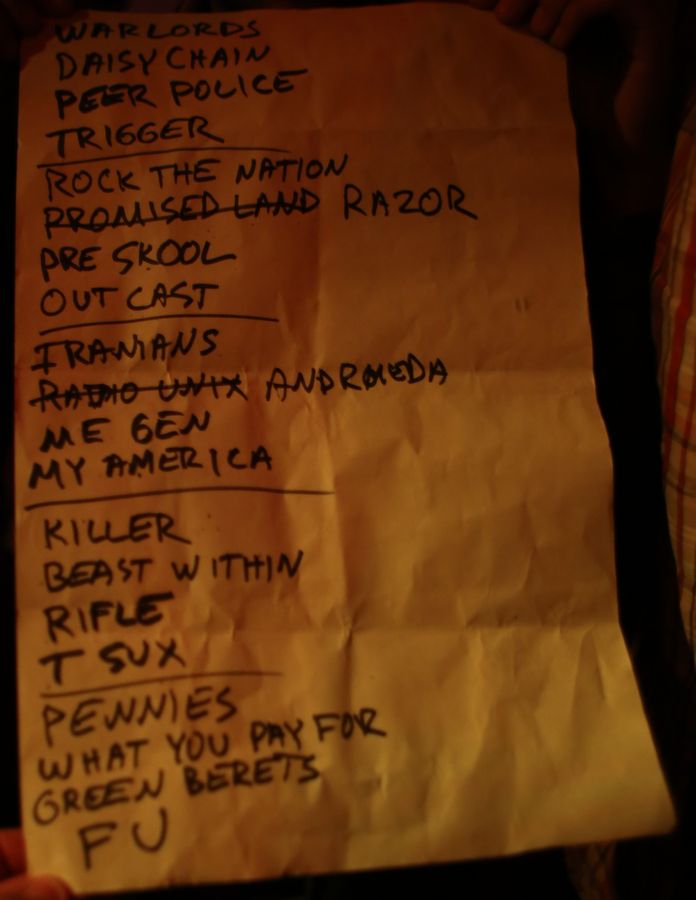 WARLORDS
DAISY CHAIN
PEER POLICE
TRIGGER
ROCK THE NATION
PROMISED LAND RAZOR
PRE SKOOL
OUT CAST
IRANIANS
RADIO UNIX ANDROMEDA
ME GEN
MY AMERICA
KILLER
BEAST WITHIN
RIFLE
T SUX
PENNIES
WHAT YOU PAY FOR
GREEN BERETS
FU